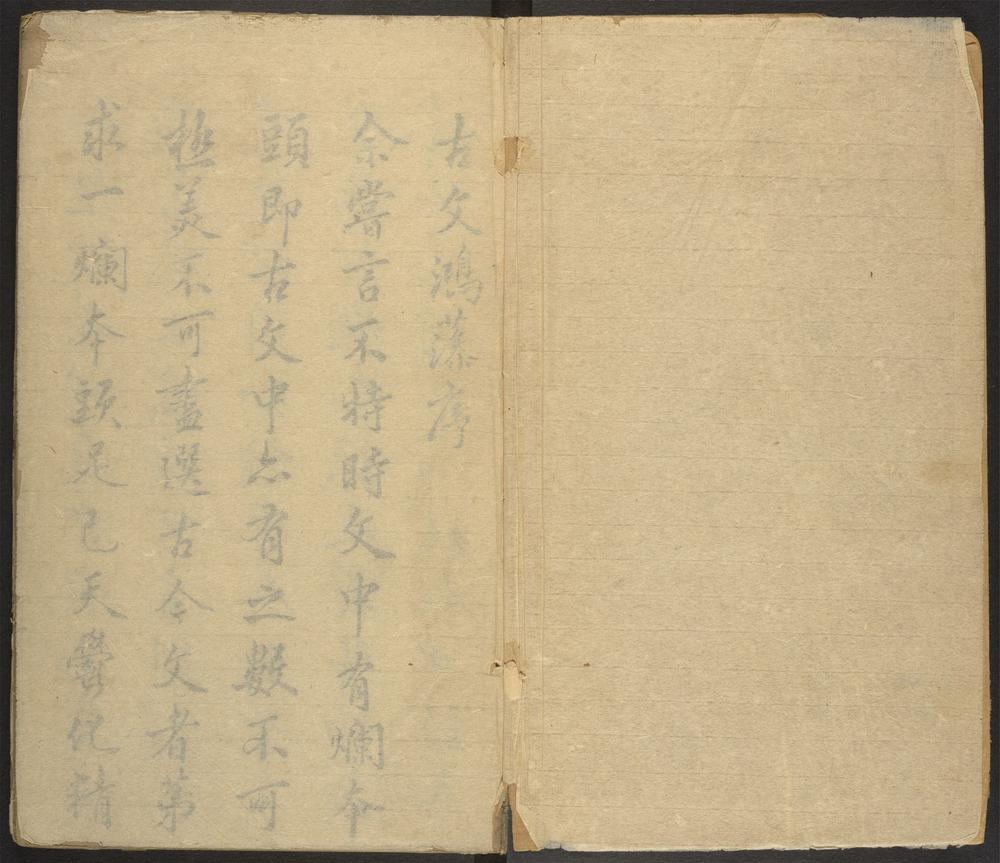 古文鴻藻序
余嘗言不特時文中有爛夲
頭即古文中亦有之數不可
極美不可盡選古今文者第
求一爛夲頭足已天化精